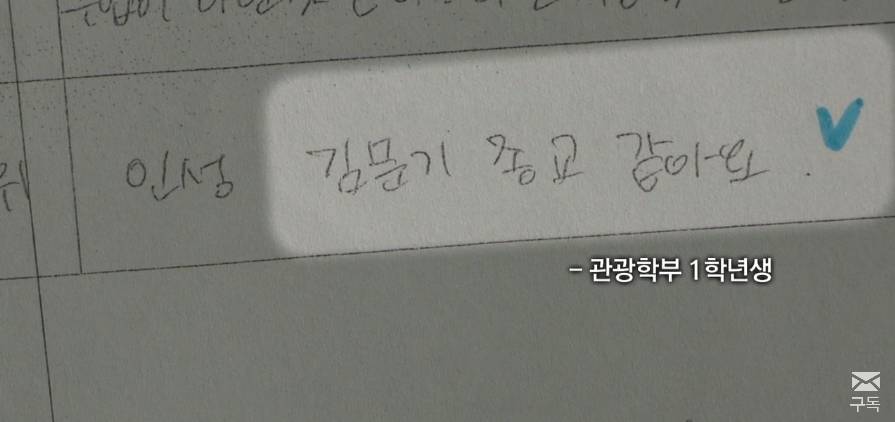 인성 김문기 종교 같아요.
- 관광학부 1학년생
구독